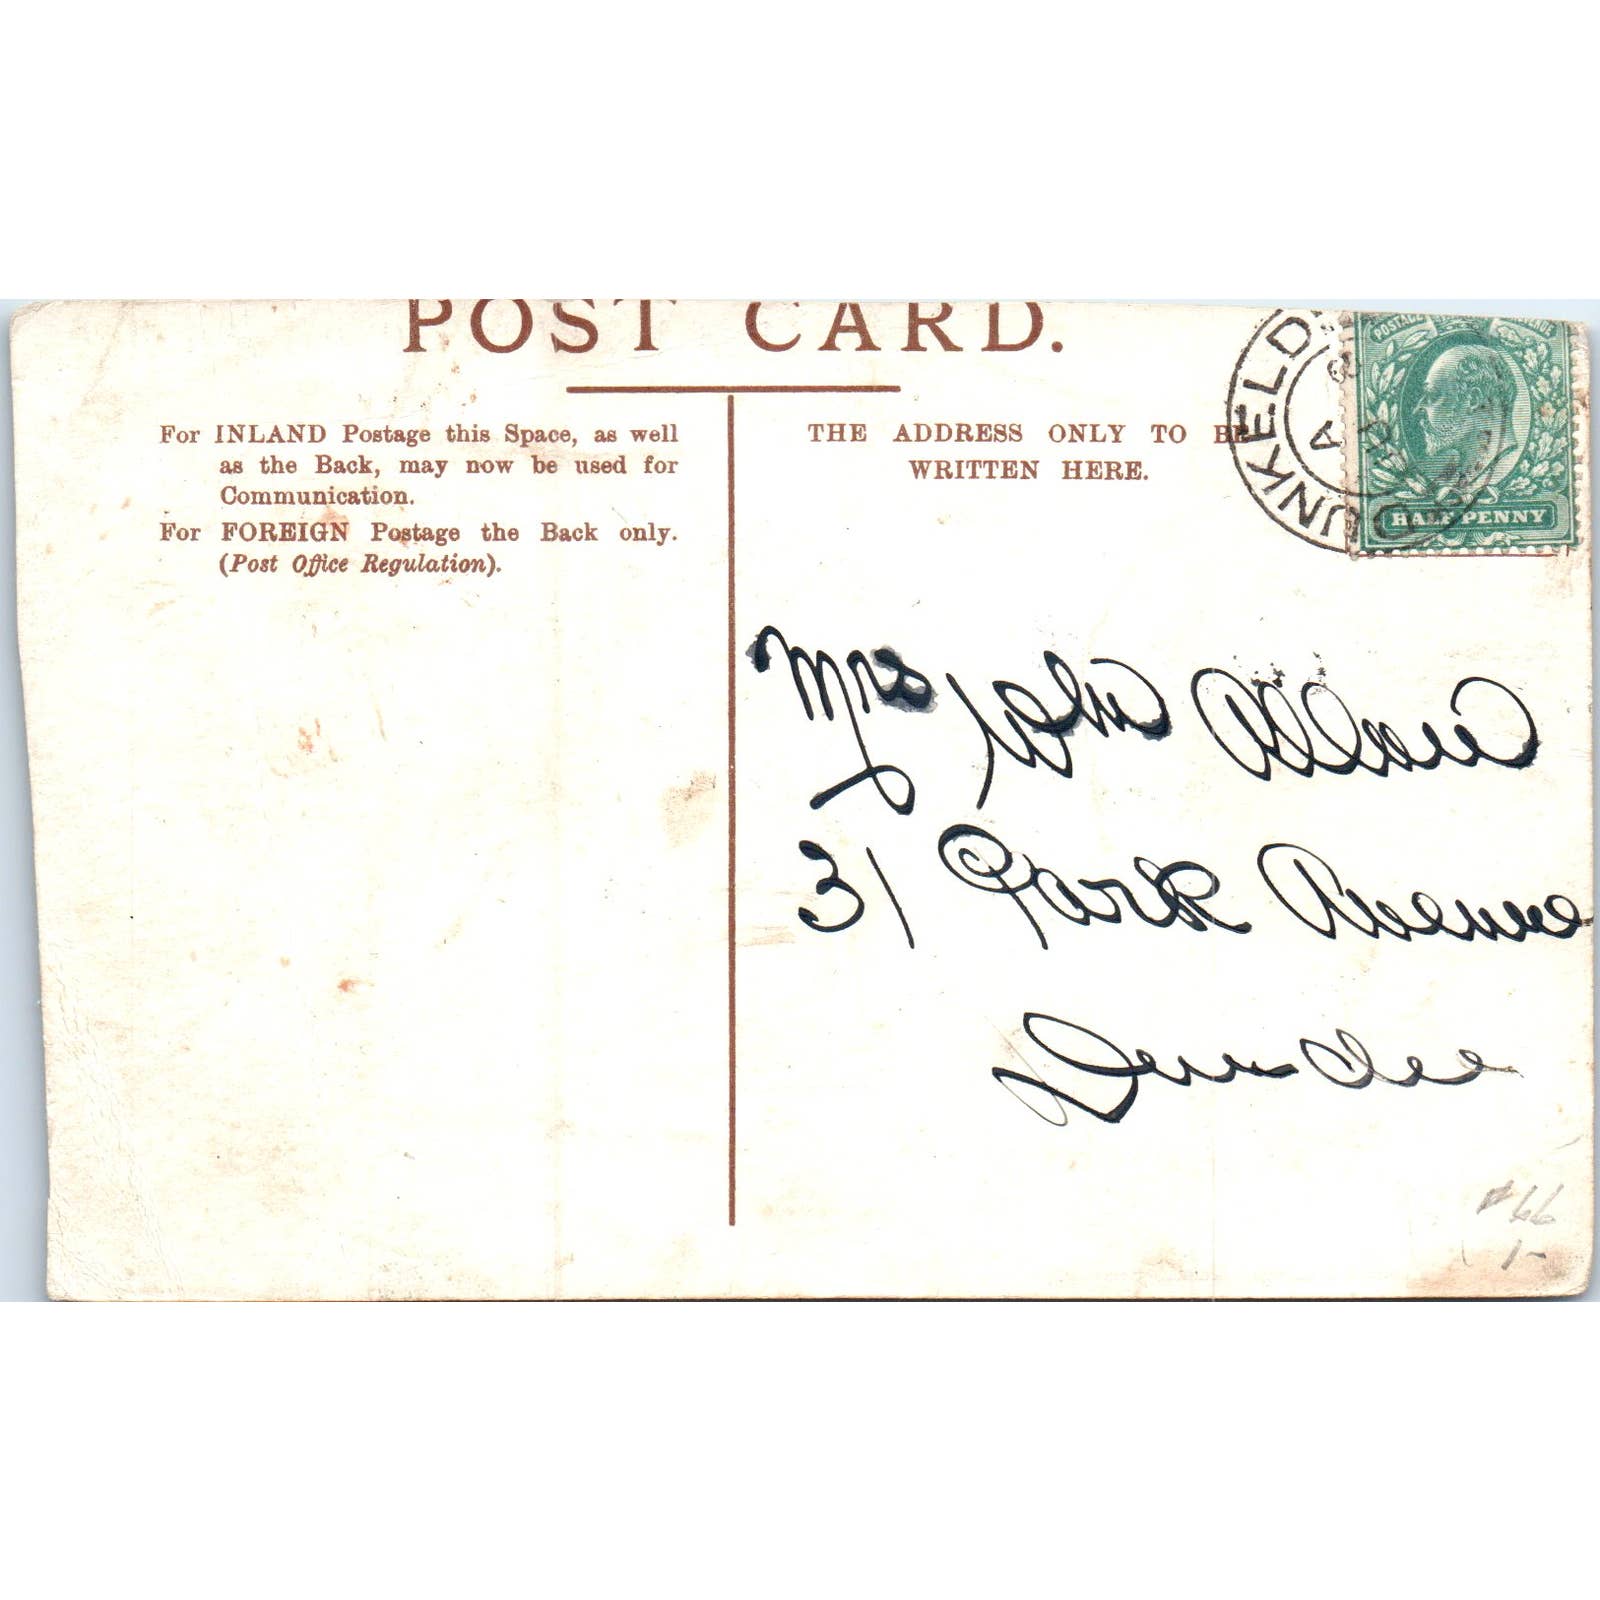 POST CARD.
For INLAND Postage this Space, as well
as the Back, may now be used for
Communication.
For FOREIGN Postage the Back only.
(Post Office Regulation).
THE ADDRESS ONLY TO BE
WRITTEN HERE.
DUNKELD
A
POSTAGE REVENUE
HALF PENNY
Mrs John Allan
31 Park Avenue
Dundee
#66
1-